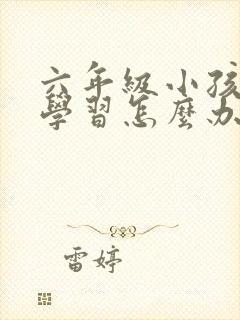 六年級小孩
學習怎麼办
雷婷